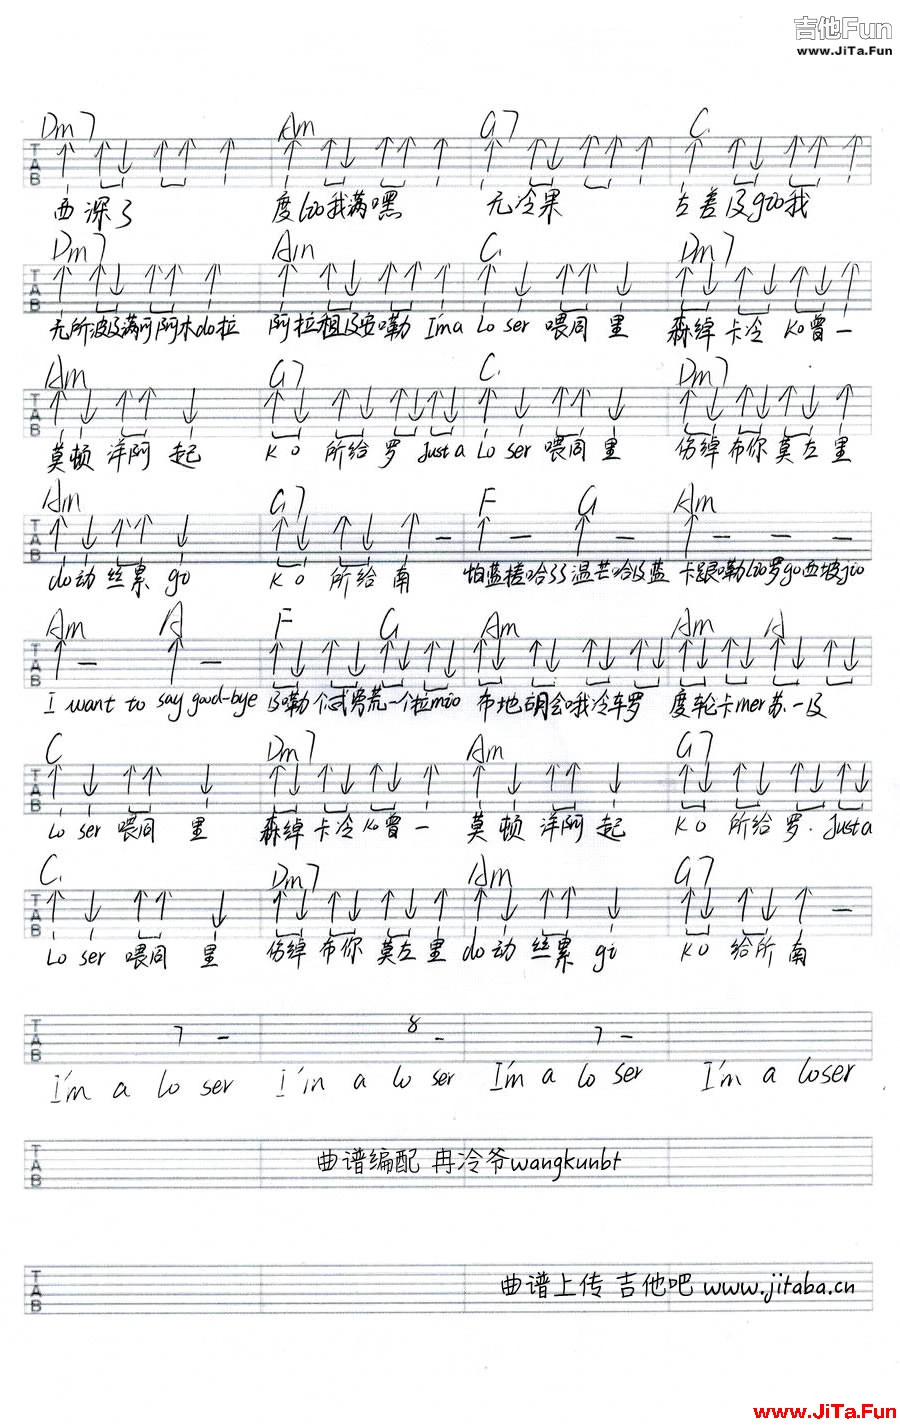 吉他Fun
www.JiTa.Fun
Dm7 Am G7 C
TAB
西深了 度lio我满嘿 无冷果 古差及gio我
Dm7 Am C Dm7
TAB
无所波及满阿阿木do拉 阿拉租及安嘞 I'm a Lo ser 喂同 里 森绰 卡冷 Ko曾一
Am G7 C Dm7
TAB
莫顿 洋阿 起 KO 所给 罗 Just a Lo ser 喂同 里 伤绰 布你 莫左 里
Am G7 F G Am
TAB
do动 丝累 go KO 所给 南 怕蓝搓哈 温芒哈及蓝 卡跟嘞lio罗go西坡gio
Am A F G Am Am A
TAB
I want to say good-bye 及嘞 个式 穷荒一个拉mio 布地胡会哦冷车罗 度轮卡mer苏一及
C Dm7 Am G7
TAB
Lo ser 喂同 里 森绰 卡冷 Ko曾 一 莫顿 洋阿 起 KO 所给 罗. Just a
C Dm7 Am G7
TAB
Lo ser 喂同 里 伤绰 布你 莫左 里 do动 丝累 go KO 给所 南
TAB 7 8 7
I'm a lo ser I'm a lo ser I'm a lo ser I'm a loser
TAB
曲谱编配 冉冷爷wangkunbt
TAB
曲谱上传 吉他吧 www.jitaba.cn
www.JiTa.Fun